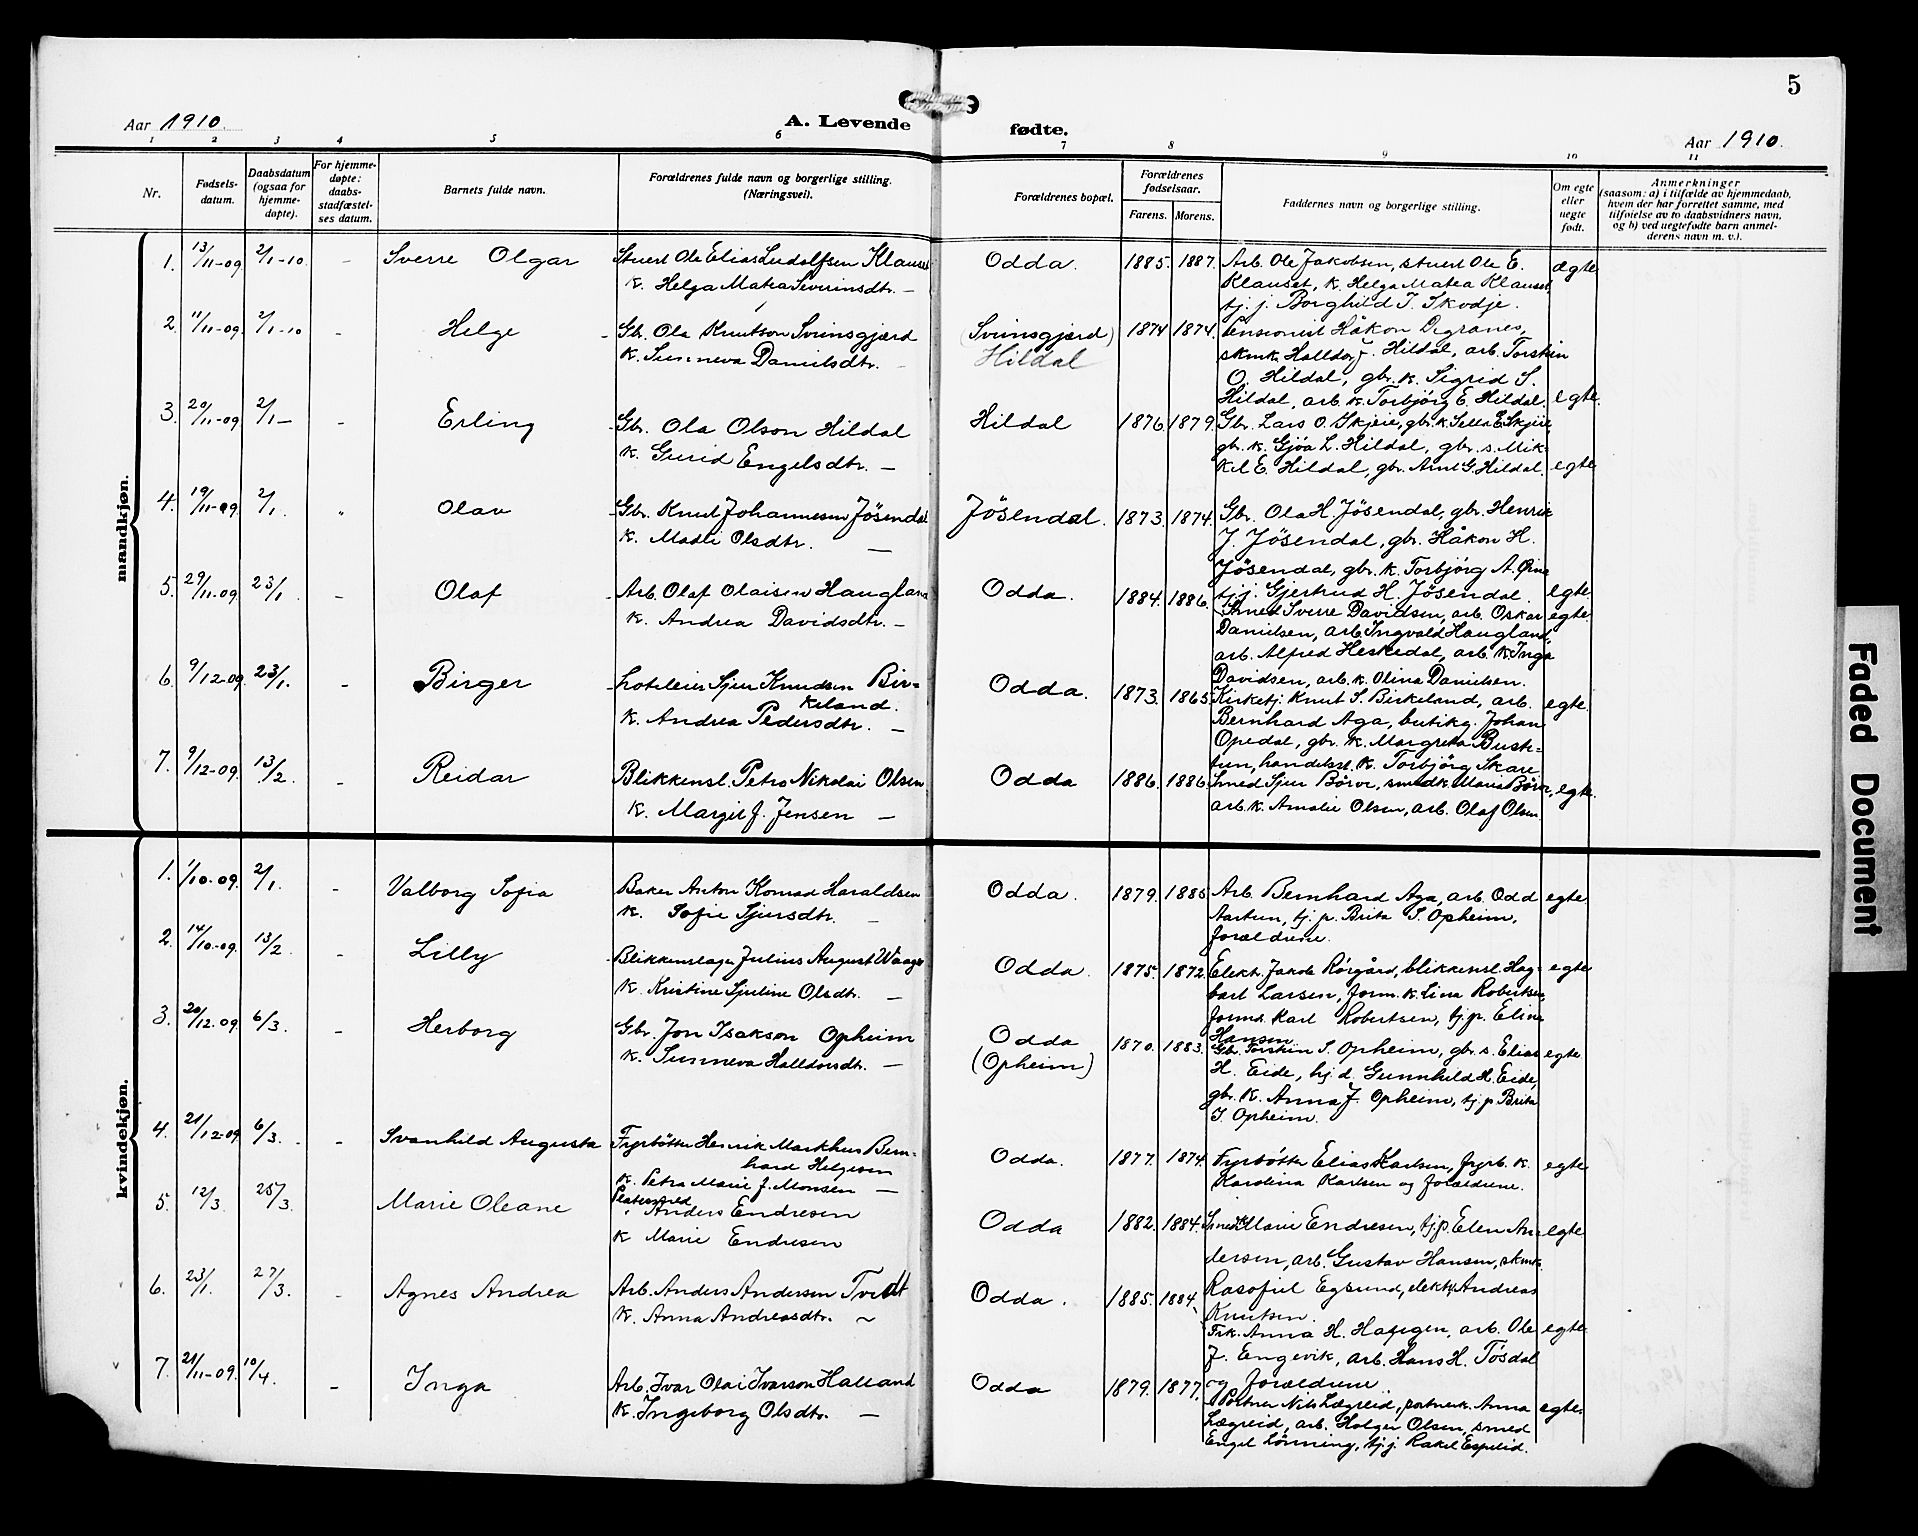 5
Aar 1910.
A. Levende
fødte.
Aar 1910.
1 2 3 4 5 6 7 8 9 10 11
Nr.
Fødsels-
datum.
Daabsdatum
(ogsaa for
hjemme-
døpte).
For hjemme-
døpte:
daabs-
stadfæstel-
ses datum.
Barnets fulde navn.
Forældrenes fulde navn og borgerlige stilling.
(Næringsvei).
Forældrenes bopæl.
Forældrenes
fødselsaar.
Farens. Morens.
Faddernes navn og borgerlige stilling.
Om egte
eller
uegte
født.
Anmerkninger
(saasom: a) i tilfælde av hjemmedaab,
hvem der har forrettet samme, med
tilføielse av to daabsvidners navn,
og b) ved uegtefødte barn anmel-
derens navn m. v.).
mandkjøn.
1. 13/11-09 2/1-10 - Sverre Olgar
Stuert Ole Elias Ludolfsen Klauset
K. Helga Matea Severinsdtr. —
Odda. 1885. 1887.
Arb. Ole Jakobsen, stuert Ole E.
Klauset, K. Helga Matea Klauset,
tj. j. Borghild I. Skodje.
ægte
2. 11/11-09. 2/1-10 - Helge
Gb. Ola Knutson Svinsgjærd
K. Sunneva Danielsdtr. -
(Svinsgjærd)
Hildal
1874 1874.
Pensionist Håkon Digranes,
skmk. Halldor J. Hildal, arb. Torstein
O. Hildal, gbr. K. Sigrid S.
Hildal, arb. K. Torbjörg E. Hildal.
egte.
3. 20/11-09 2/1- - Erling
Gbr. Ola Olson Hildal
K. Gurid Engelsdtr. —
Hildal 1876 1879.
Gbr. Lars O. Skjeie, gbr. K. Sella E. Skjeie,
gbr. K. Gjöa L. Hildal, gbr. s. Mik-
kel E. Hildal, gbr. Arne G. Hildal.
egte
4. 19/11-09. 2/1. " Olav
Gbr. Knut Johannesen Jösendal
K. Madli Olsdtr. —
Jösendal. 1873. 1874.
Gbr. Ola H. Jösendal, gbr. Henrik
J. Jösendal, gbr. Håkon H.
Jösendal, gbr. K. Torbjörg A.
tj. j. Gjertrud H. Jösendal.
egte
5. 29/11-09. 23/1. - Olaf
Arb. Olaf Olaisen Haugland
K. Andrea Davidsdtr. —
Odda. 1884. 1886.
Smed Sverre Davidsen, arb. Oskar
Danielsen, arb. Ingvald Haugland,
arb. Alfred Heskedal, arb. K. Inga
Davidsen, arb. K. Olina Danielsen.
egte.
6. 9/12-09. 23/1. - Birger
Hoteleier Sjur Knudsen Bir-
keland.
K. Andrea Pedersdtr. —
Odda. 1873. 1865
Kirketj. Knut S. Birkeland, arb.
Bernhard Aga, butikg. Johan
Opedal, gbr. K. Margreta Buste-
tun, handelsst. K. Torbjörg Skare
egte.
7. 9/12-09. 13/2. - Reidar
Blikkensl. Petro Nikolai Olsen
K. Margit J. Jensen —
Odda 1886. 1886.
Smed Sjur Börve, smedk. Maria Börve,
arb. K. Amalie Olsen, arb. Olaf Olsen.
egte.
kvindekjøn.
1. 1/10-09. 2/1. - Valborg Sofia
Baker Anton Konrad Haraldsen
K. Sofie Sjursdtr. —
Odda. 1879. 1885
Arb. Bernhard Aga, arb. Odd
Aartun, tj. p. Brita S. Opheim,
forældrene.
egte
2. 14/10-09. 13/2 - Lilly
Blikkenslager Julius August Waage
K. Kristine Sjurine Olsdtr. —
Odda. 1875. 1872.
Elekt. Jakob Rörgård, blikkensl. Hag-
bart Larsen, form. K. Lina Robertsen,
formd. Karl Robertsen, tj. p. Eline
Hansen.
egte
3. 20/12-09. 6/3. - Herborg
Gbr. Jon Isakson Opheim
K. Sunneva Halldorsdtr. —
Odda
(Opheim)
1870. 1883.
Gbr. Torstein S. Opheim, gbr. s. Elias
H. Eide, hj. d. Gunnhild H. Eide,
gbr. K. Anna J. Opheim, tj. p. Brita
I. Opheim.
egte
4. 21/12-09 6/3. - Svanhild Augusta
Fyrbötter Henrik Markhus Bern-
hard Helgesen
K. Petra Marie J. Monsen —
Odda. 1877. 1874.
Fyrbötter Elias Karlsen, fyrb. K.
Karolina Karlsen og forældrene.
egte
5. 12/3. 25/3. Marie Oleane
Anders Endresen
K Marie Endresen
Odda 1882. 1884.
Smedk. Marie Endresen, tj. p. Elen An-
dersen, arb. Gustav Hansen, skmk.
Rasofiel Egsund, elekt. Andreas
Knutsen.
egte
6. 23/1. 27/3. - Agnes Andrea
Arb. Anders Andersen Tvedt
K. Anna Andreasdtr. ~
Odda. 1885. 1884.
Frk. Anna H. Hafegen, arb. Ole
J. Engevik, arb. Hans H. Tösdal
og forældrene.
egte
7. 21/11-09. 10/4. - Inga
Arb. Ivar Olai Ivarson Halland
K. Ingeborg Olsdtr. —
Odda 1879. 1877.
Portner Nils Lægreid, portnerk. Anna
Lægreid, arb. Holger Olsen, smed
Engel Lönning, tj. j. Rakel Espelid.
egte.
Faded Document